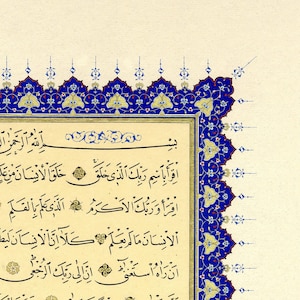 بِسْمِ اللّٰهِ الرَّحْمٰنِ
اِقْرَأْ بِاسْمِ رَبِّكَ الَّذ۪ي خَلَقَ خَلَقَ الْاِنْسَانَ مِنْ
اِقْرَأْ وَرَبُّكَ الْاَكْرَمُ الَّذ۪ي عَلَّمَ بِالْقَلَمِ
الْاِنْسَانَ مَا لَمْ يَعْلَمْ كَلَّا اِنَّ الْاِنْسَانَ
اَنْ رَاٰهُ اسْتَغْنٰى اِنَّ اِلٰى رَبِّكَ الرُّجْعٰى